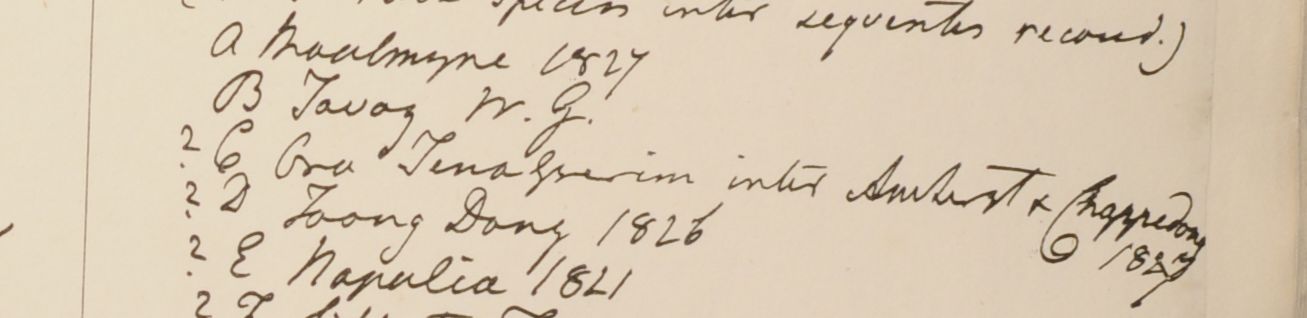 species inter sequentes recond.)
A Moalmyne 1827
B Tavoy W. G.
? C Ora Tenasserim inter Amherst & Chappedong 1827
? D Toong Dong 1826
? E Napalia 1821
? F